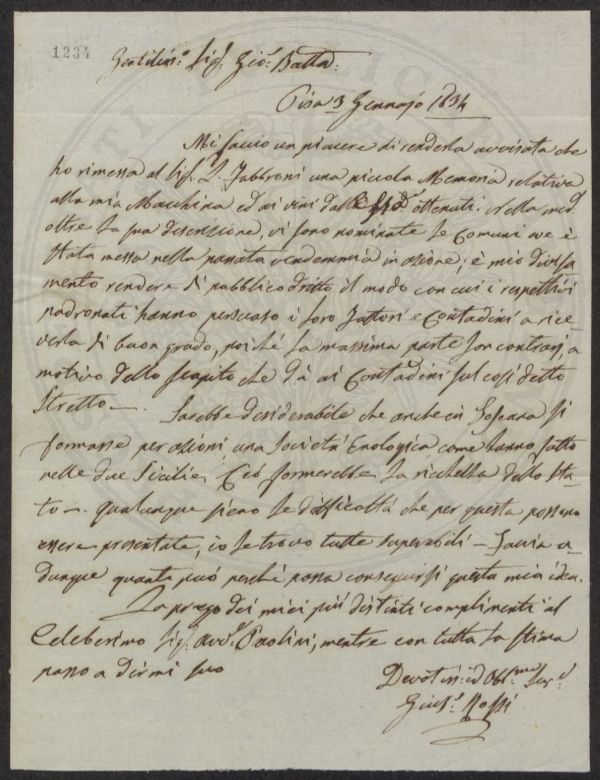 1234
Gentiliss.o Sig.r Gio. Batta.
Pisa 3 Gennajo 1834
Mi faccio un piacere di renderla avvisata che
ho rimessa al Sig.r L. Fabbroni una piccola Memoria relativa
alla mia Macchina ed ai vini dalla ottenuti. Nella med.a
oltre la sua descrizione, vi sono nominate le Comuni ove è
stata messa nella passata vendemmia in azione; è mio
mento rendere di pubblico dritto il modo con cui i respettivi
padronati hanno persuaso i loro Fattori e Contadini a rice-
verla di buon grado, poiché la massima parte son contrarj a
motivo dello scapito che dà ai Contadini sul così detto
Stretto —. Sarebbe desiderabile che anche in Toscana si
formasse per azioni una Società Enologica come hanno fatto
nelle due Sicilie. Ciò formerebbe la ricchezza dello Sta-
to —. qualunque sieno le difficoltà che per questa possono
essere presentate, io le trovo tutte superabili — Faccia a-
dunque quanto può perché possa conseguirsi questa mia idea.
La prego dei miei più distinti complimenti al
Celeberimo Sig.r Avv.o Paolini, mentre con tutta la stima
passo a dirmi suo
Devotiss.o ed Obb.mo Ser.e
Gius.e Rossi